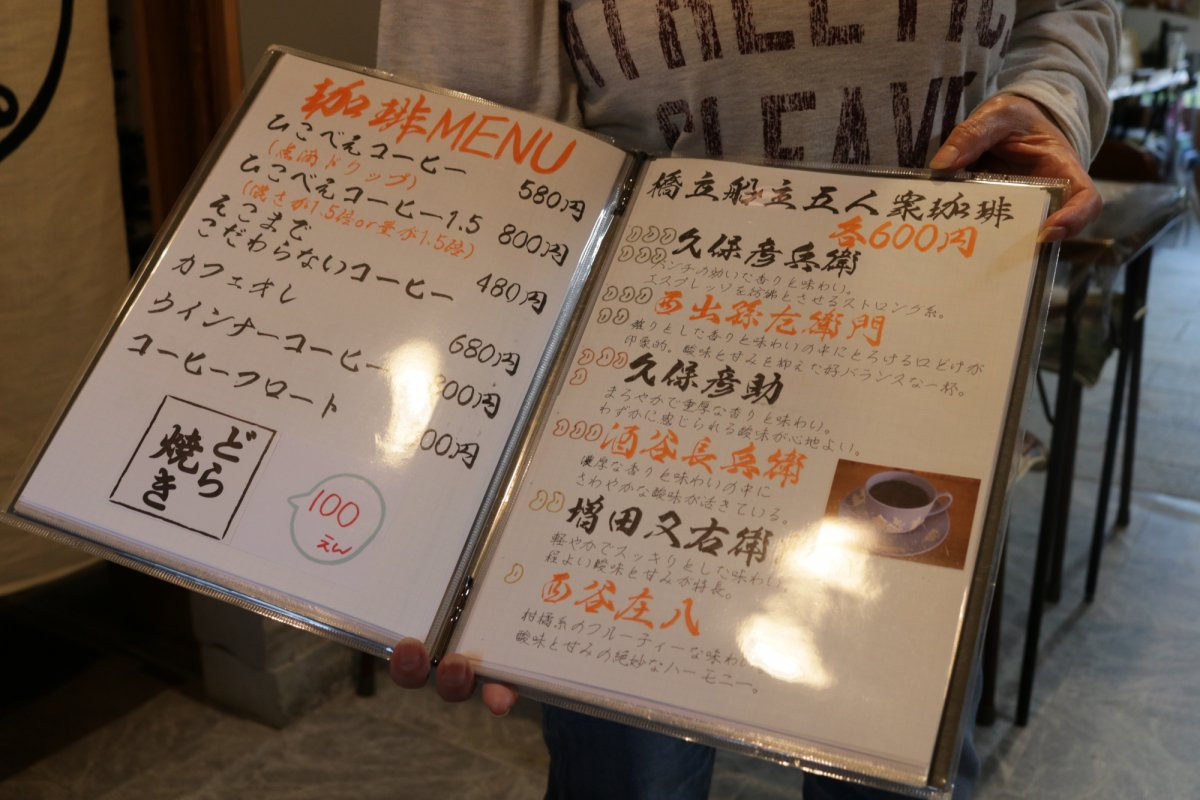 珈琲MENU
ひこべえコーヒー 580円
(点滴ドリップ)
ひこべえコーヒー1.5 800円
(濃さが1.5倍or量が1.5倍)
そこまで
こだわらないコーヒー 480円
カフェオレ 680円
ウインナーコーヒー 800円
コーヒーフロート 00円
どら
焼き
100
えん
橋立船主五人衆珈琲
各600円
久保彦兵衛
パンチの効いた香りと味わい。
エスプレッソを彷彿とさせるストロング系。
西出孫左衛門
凛りとした香りと味わいの中にとろける口どけが
印象的。酸味と甘みを抑えた好バランスな一杯。
久保彦助
まろやかで重厚な香りと味わい。
わずかに感じられる酸味が心地よい。
酒谷長兵衛
濃厚な香りと味わいの中に
さわやかな酸味が活きている。
増田又右衛
軽やかでスッキリとした味わい
程よい酸味と甘みが特長。
西谷庄八
柑橘系のフルーティーな味わい
酸味と甘みの絶妙なハーモニー。